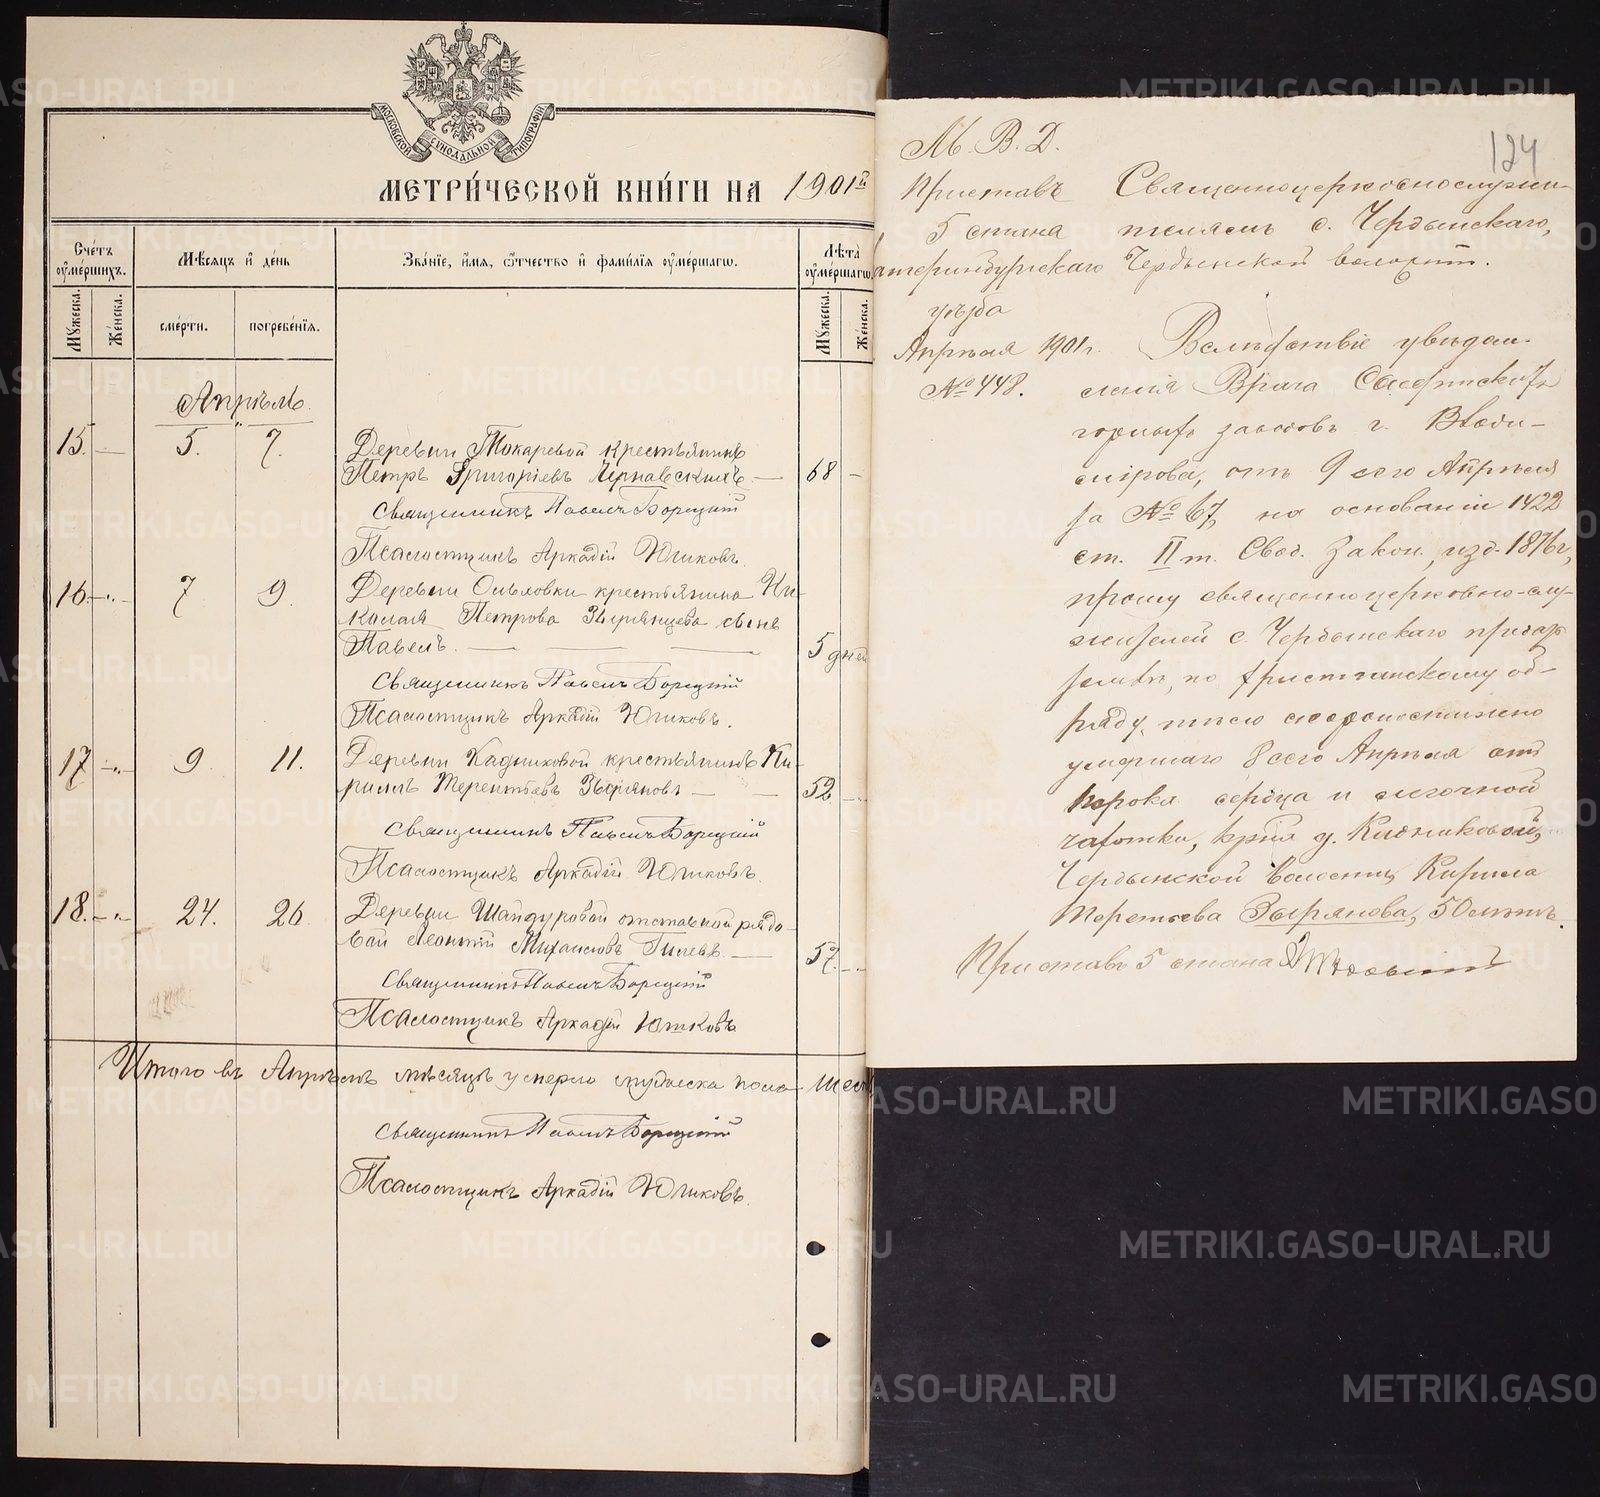 МОСКОВСКОЙ СѴНОДАЛЬНОЙ ТИПОГРАФІИ
МЕТРИ́ЧЕСКОЙ КНИ́ГИ НА 1901й
Сче́тъ ᲂу҆ме́ршихъ.
Мѣ́сяцъ и҆ де́нь
Зва́нїе, и҆́мя, ѻ҆́тчество и҆ фамилїя ᲂу҆ме́ршагѡ.
Лѣ́та ᲂу҆ме́ршагѡ
Мꙋ́жеска.
Же́нска.
сме́рти.
погребе́нїя.
Мꙋ́жеска.
Же́нска.
Апрѣль.
15. — 5. 7. Деревни Токаревой крестьянинъ
Петръ Григоріевъ Чернавскихъ — 68 —
Священникъ Павелъ Борецкій
Псаломщикъ Аркадій Юшковъ.
16. — 7 9. Деревни Ольховки крестьянина Ни-
колая Петрова Зырянцева сынъ
Павелъ. — — — 5 дней
Священникъ Павелъ Борецкій
Псаломщикъ Аркадій Юшковъ.
17 — 9. 11. Деревни Кадниковой крестьянинъ Ки-
риллъ Терентьевъ Зыряновъ — — 52 —
Священникъ Павелъ Борецкій
Псаломщикъ Аркадій Юшковъ.
18. — 24. 26. Деревни Шайдуровой отставной рядо-
вой Леонтій Михаиловъ Гилевъ. — 57. —
Священникъ Павелъ Борецкій
Псаломщикъ Аркадій Юшковъ
Итого въ Апрѣлѣ мѣсяцѣ умерло мужеска пола
Священникъ Павелъ Борецкій
Псаломщикъ Аркадій Юшковъ.
124
М. В. Д.
Приставъ
5 стана
уѣзда
Апрѣля 1901 г.
№ 448.
Священноцерковнослужи-
телямъ с. Чердынскаго,
Чердынской волости.
Вслѣдствіе увѣдом-
ленія Врача Сысертскихъ
горныхъ заводовъ г. Влади-
мірова, отъ 9 сего Апрѣля
за № 67, на основаніи 1422
ст. II т. Свод. Закон., изд. 1876 г,
прошу священноцерковно-слу-
жителей с. Чердынскаго предать
землѣ, по христіанскому об-
ряду, тѣло скоропостижно
умершаго 8 сего Апрѣля отъ
порока сердца и легочной
чахотки, кр-на д. Кадниковой,
Чердынской волости, Кирила
Терентьева Зырянова, 50 лѣтъ.
Приставъ 5 стана
METRIKI.GASO-URAL.RU